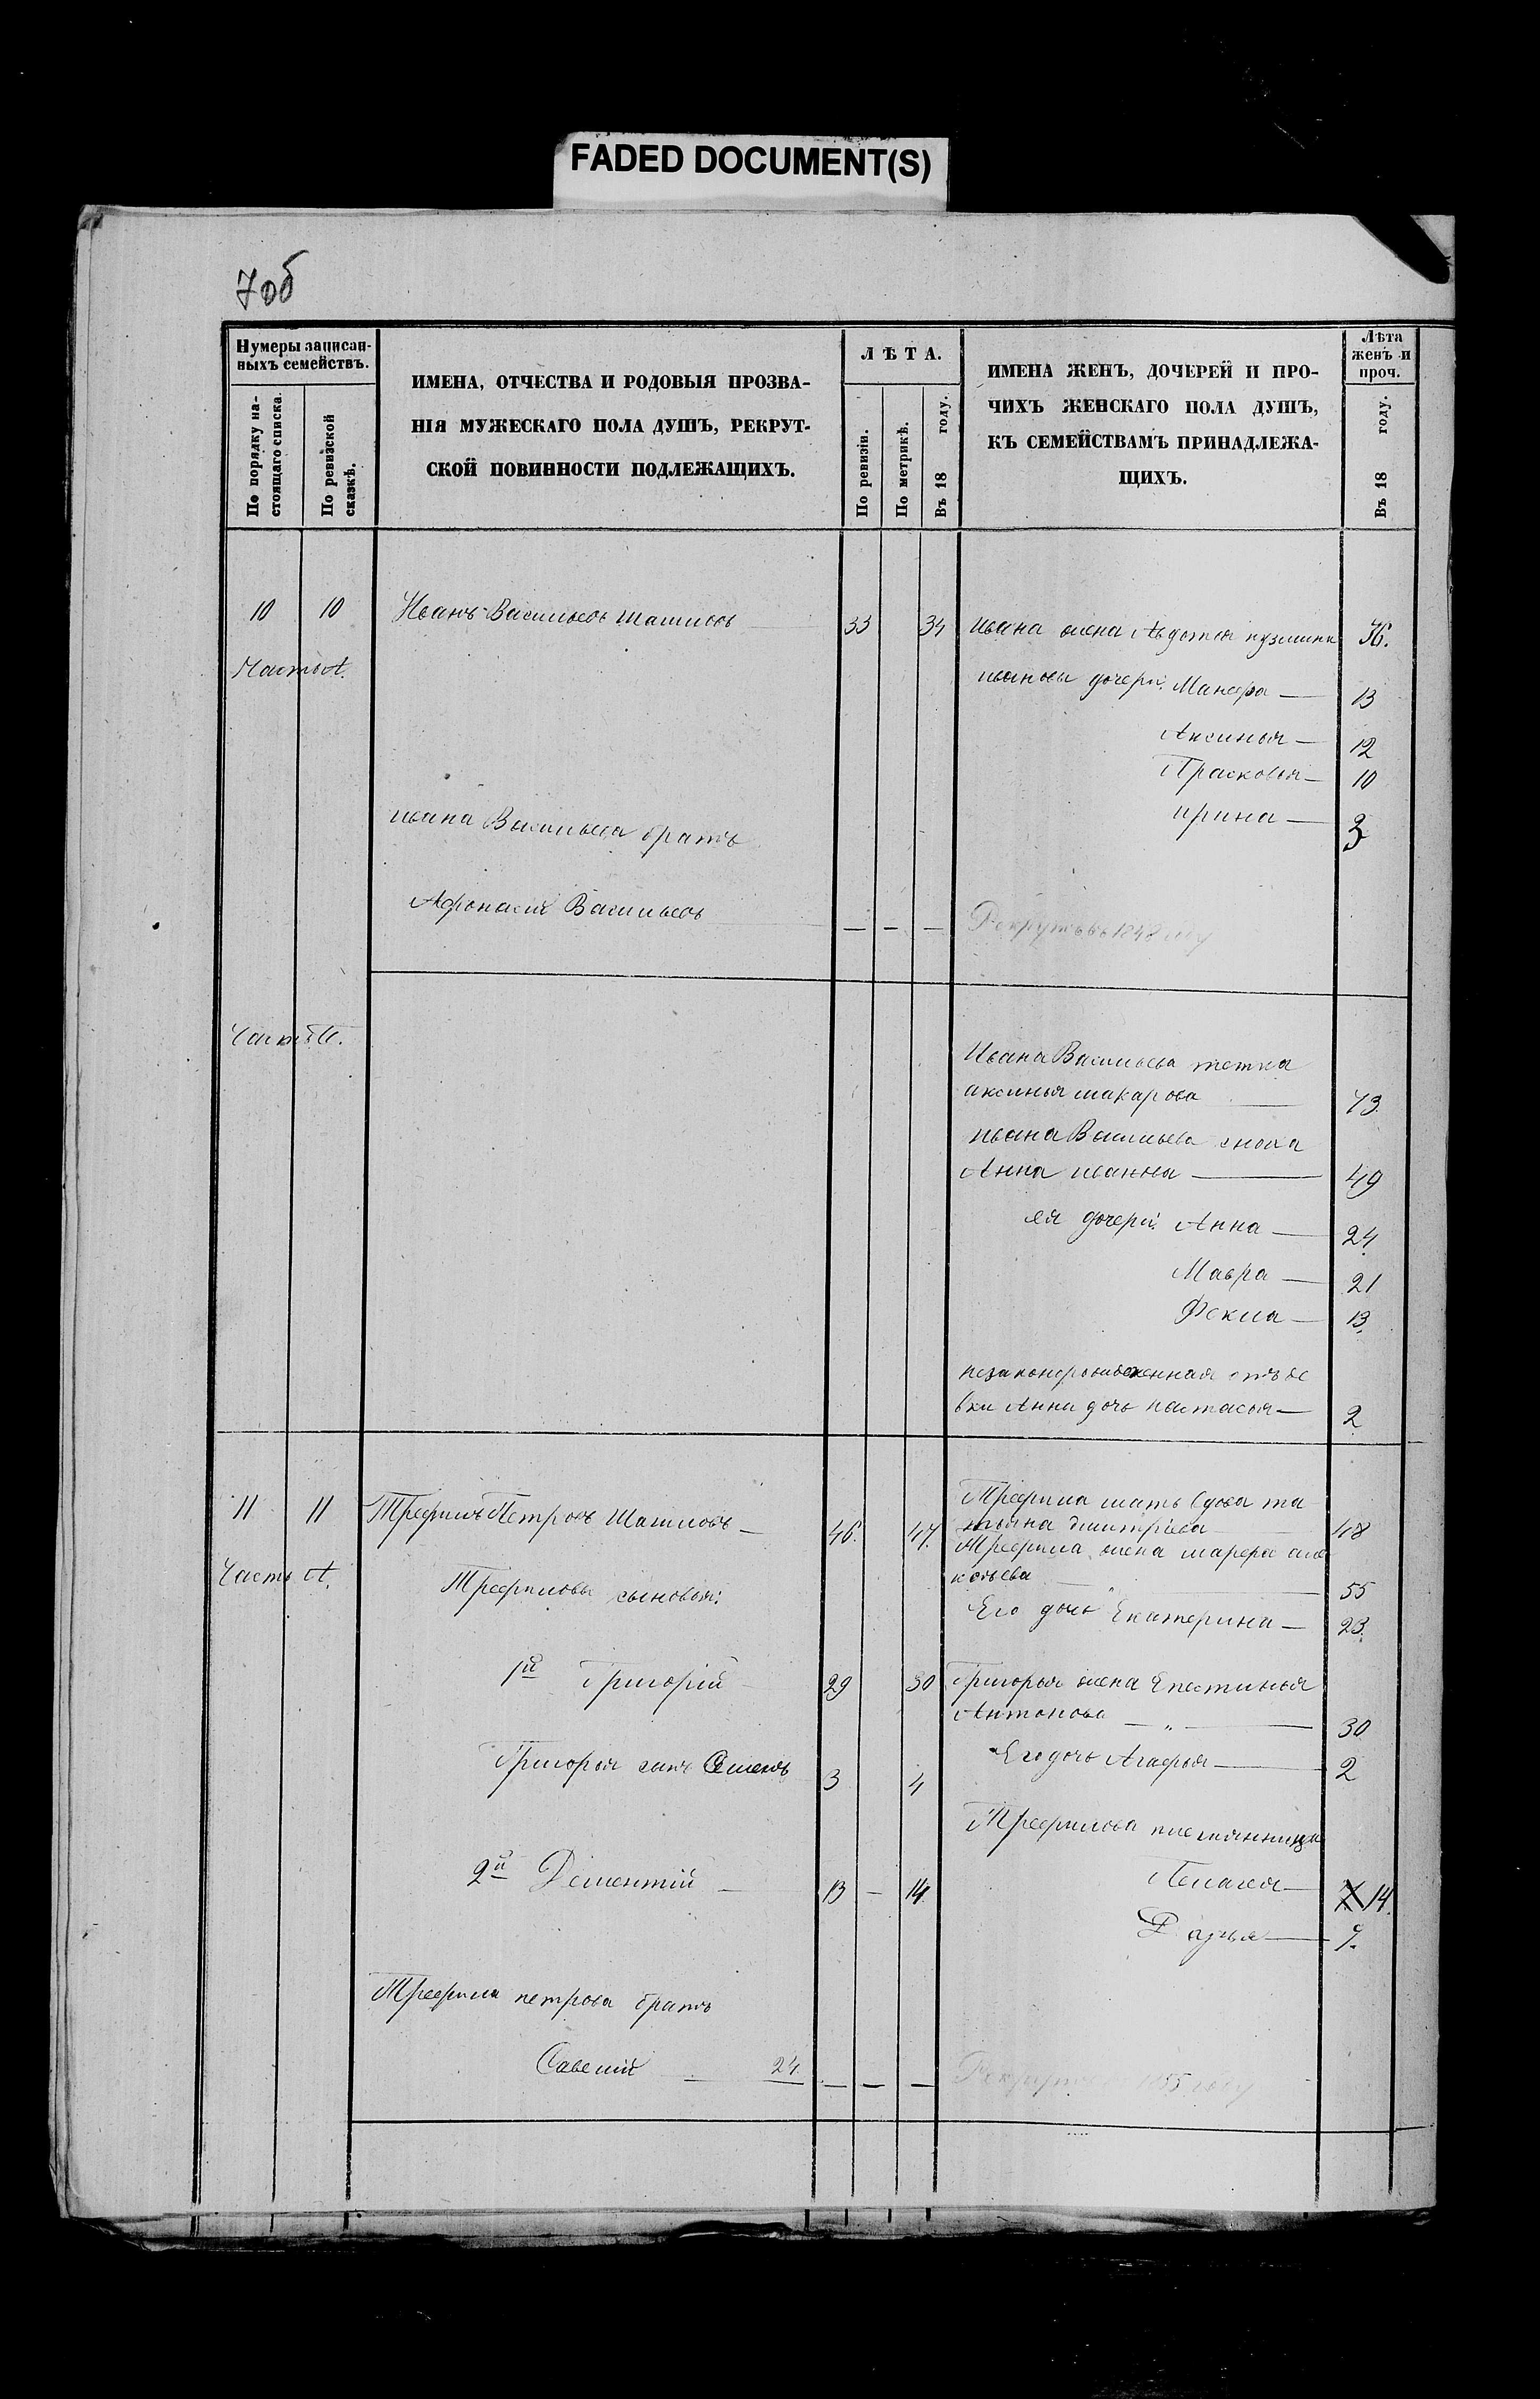 FADED DOCUMENT(S)
7об
Нумеры записан-
ныхъ семействъ.
По порядку на-
стоящаго списка.
По ревизской
сказкѣ.
ИМЕНА, ОТЧЕСТВА И РОДОВЫЯ ПРОЗВА-
НІЯ МУЖЕСКАГО ПОЛА ДУШЪ, РЕКРУТ-
СКОЙ ПОВИННОСТИ ПОДЛЕЖАЩИХЪ.
ЛѢТА.
По ревизіи.
По метрикѣ.
Въ 18 году.
ИМЕНА ЖЕНЪ, ДОЧЕРЕЙ И ПРО-
ЧИХЪ ЖЕНСКАГО ПОЛА ДУШЪ,
КЪ СЕМЕЙСТВАМЪ ПРИНАДЛЕЖА-
ЩИХЪ.
Лѣта
женъ и
проч.
Въ 18 году.
10 10 Иванъ Васильевъ Шашловъ 33 34 ивана жена Авдотья кузмина 36.
Часть А.
ивановы дочери: Манефа — 13
Аксинья — 12
Прасковья — 10
ирина — 3
ивана Васильева братъ
Афонасій Васильевъ — — — Рекрутъ въ 1848 году
Часть
Ивана Васильева тетка
аксинья макарова 73.
ивана Васильева сноха
Анна иванова — 49
ея дочери: Анна — 24
Мавра — 21
Фекла — 13.
незаконорожденная отъ де
вки Анны дочь настасья — 2
11 11 Трефилъ Петровъ Шашловъ — 46. 47.
Трефила мать вдова та
тьяна дмитріева 78
Часть А.
Трефила жена марфа
55
Трефиловы сыновья:
Его дочь Екатерина — 23.
1й Григорій 29 30 Григорья жена Епестинья
Антонова — „ — 30
Григорья сынъ Семенъ 3 4 Его дочь Агафья — 2
Трефилова племянница
2й Дементій — 13 — 14 Пелагея — 14.
Дарья — 9.
Трефила петрова братъ
Савелій — 24. — — — Рекрутъ въ 1855 году